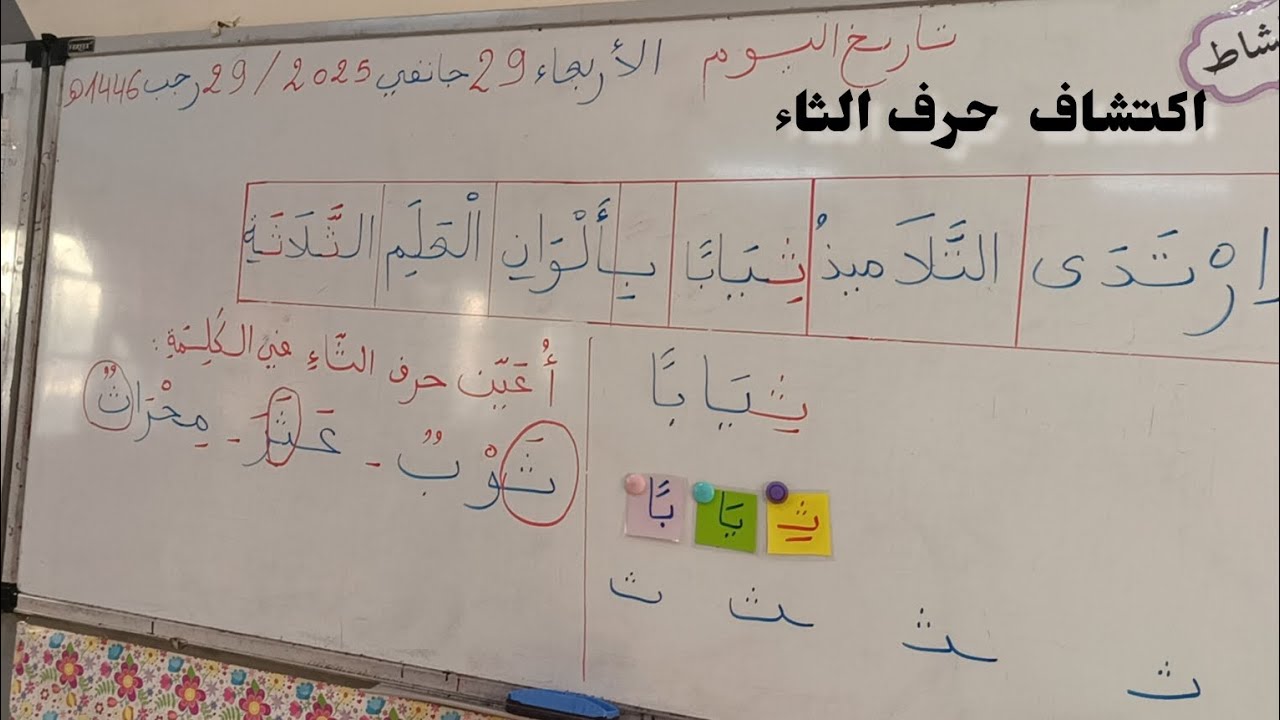 نشاط
تاريخ اليوم الأربعاء 29 جانفي 2025 / 29 رجب 1446هـ
اكتشاف حرف الثاء
اِرْتَدَى التَّلَامِيذُ ثِيَابًا بِأَلْوَانِ الْعَلَمِ الثَّلَاثَةِ
ثِيَابًا
ثِ يَا بًا
ث ـثـ ـث ث
أُعَيِّن حرف الثَّاءِ في الكَلِمَةِ:
ثَوْبٌ - عَثَرَ - مِحْرَاثٌ